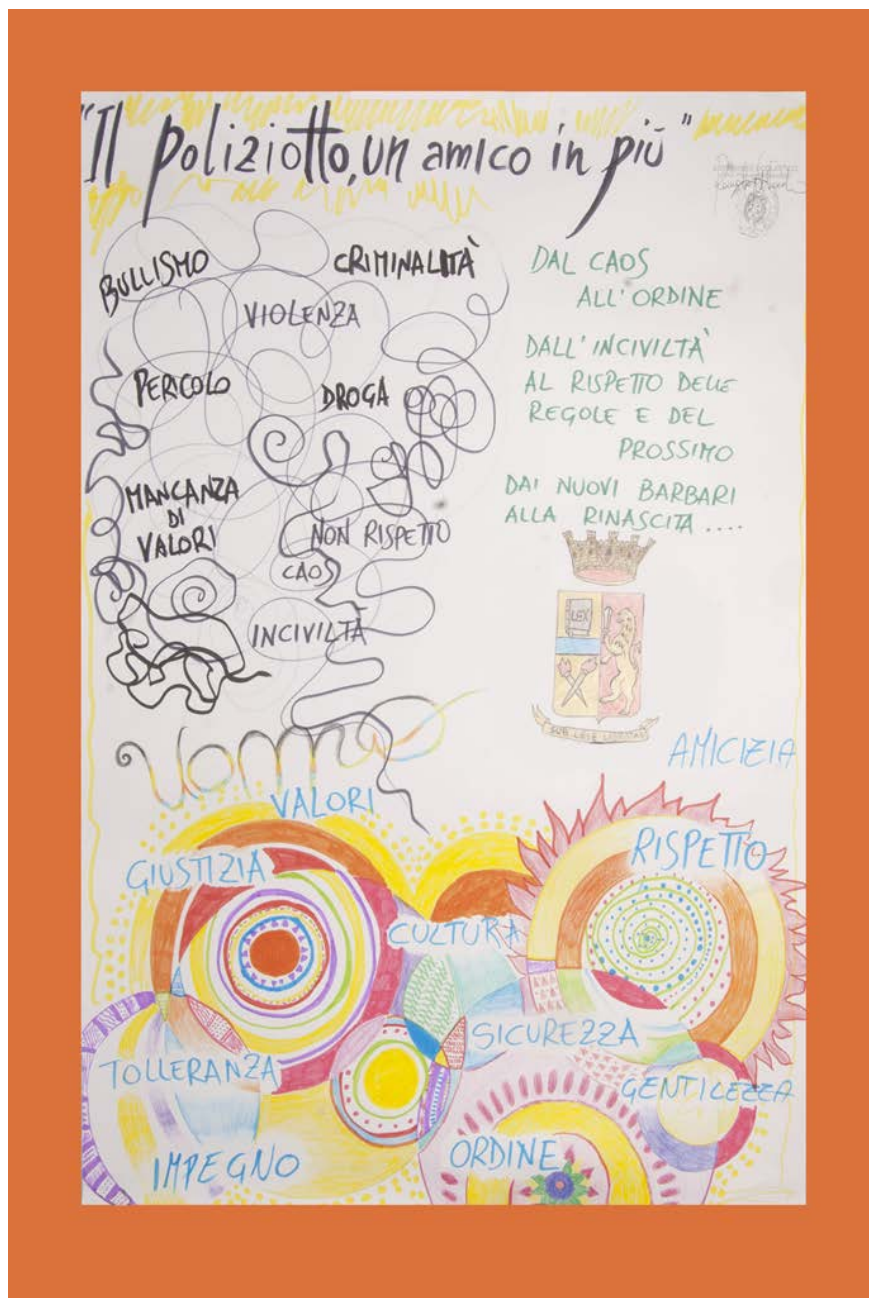 "Il poliziotto, un amico in più"
BULLISMO
CRIMINALITÀ
VIOLENZA
PERICOLO
DROGA
MANCANZA
DI
VALORI
NON RISPETTO
CAOS
INCIVILTÀ
DAL CAOS
ALL'ORDINE
DALL'INCIVILTÀ
AL RISPETTO DELLE
REGOLE E DEL
PROSSIMO
DAI NUOVI BARBARI
ALLA RINASCITA ....
LEX
SUB LEGE LIBERTAS
AMICIZIA
VALORI
GIUSTIZIA
RISPETTO
CULTURA
SICUREZZA
TOLLERANZA
GENTILEZZA
IMPEGNO
ORDINE